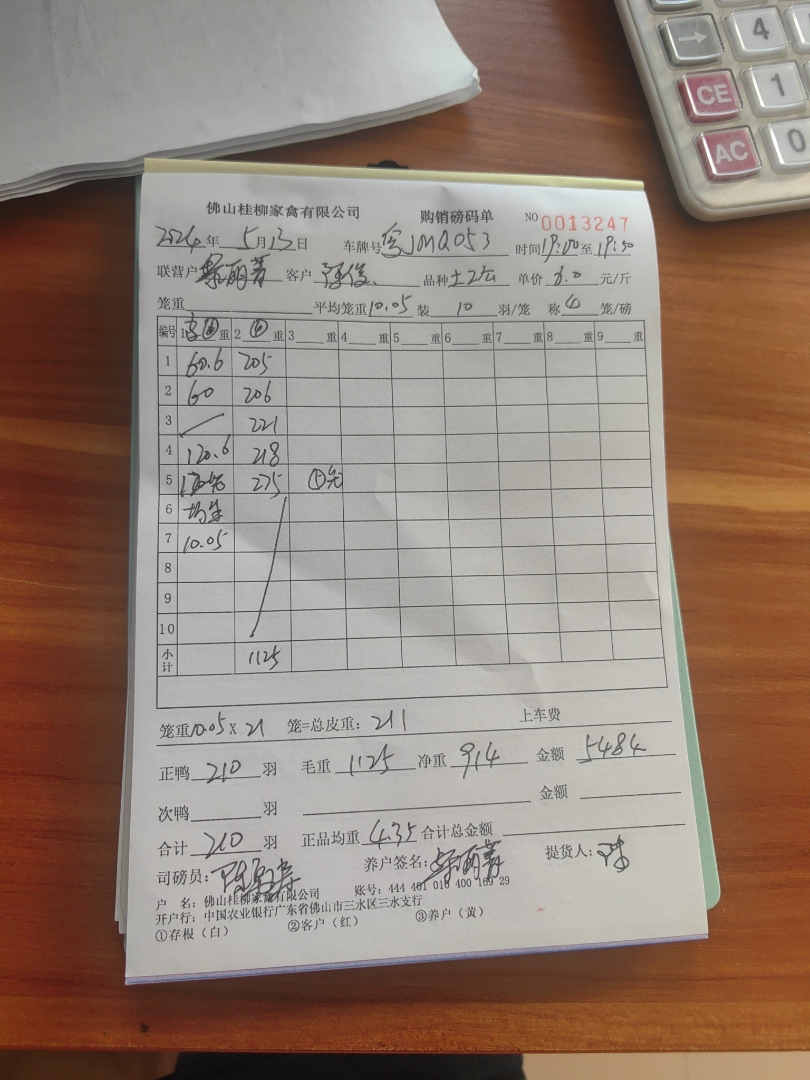 → 4
CE 1
AC 0
佛山桂柳家禽有限公司 购销磅码单 NO 0013247
2024年5月13日 车牌号 JMQ053 时间19:00至19:30
联营户 客户 品种 单价6.0元/斤
笼重 平均笼重10.05装10羽/笼 称④笼/磅
编号 1 ④重 2 ④重 3 重 4 重 5 重 6 重 7 重 8 重 9 重
1 60.6 205
2 60 206
3 221
4 120.6 218
5 275 ⑤
6
7 10.05
8
9
10
小计 1125
笼重10.05X21 笼=总皮重:211 上车费
正鸭210羽 毛重1125净重914 金额5484
次鸭 羽 金额
合计210羽 正品均重4.35合计总金额
司磅员: 养户签名: 提货人:
户 名:佛山桂柳家禽有限公司 账号:444 401 010 400 169 29
开户行:中国农业银行广东省佛山市三水区三水支行
①存根(白) ②客户(红) ③养户(黄)